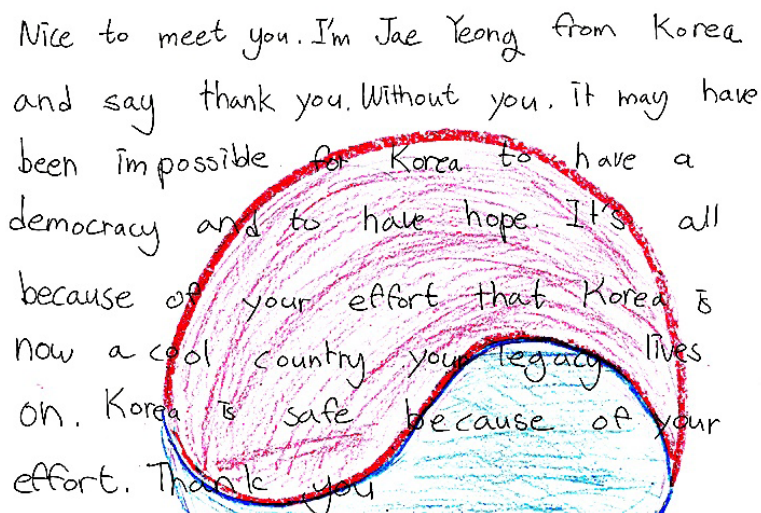 Nice to meet you. I'm Jae Yeong from Korea
and say thank you. Without you. it may have
been impossible for Korea to have a
democracy and to have hope. It's all
because of your effort that Korea is
now a cool country your legacy lives
on. Korea is safe because of your
effort. Thank you